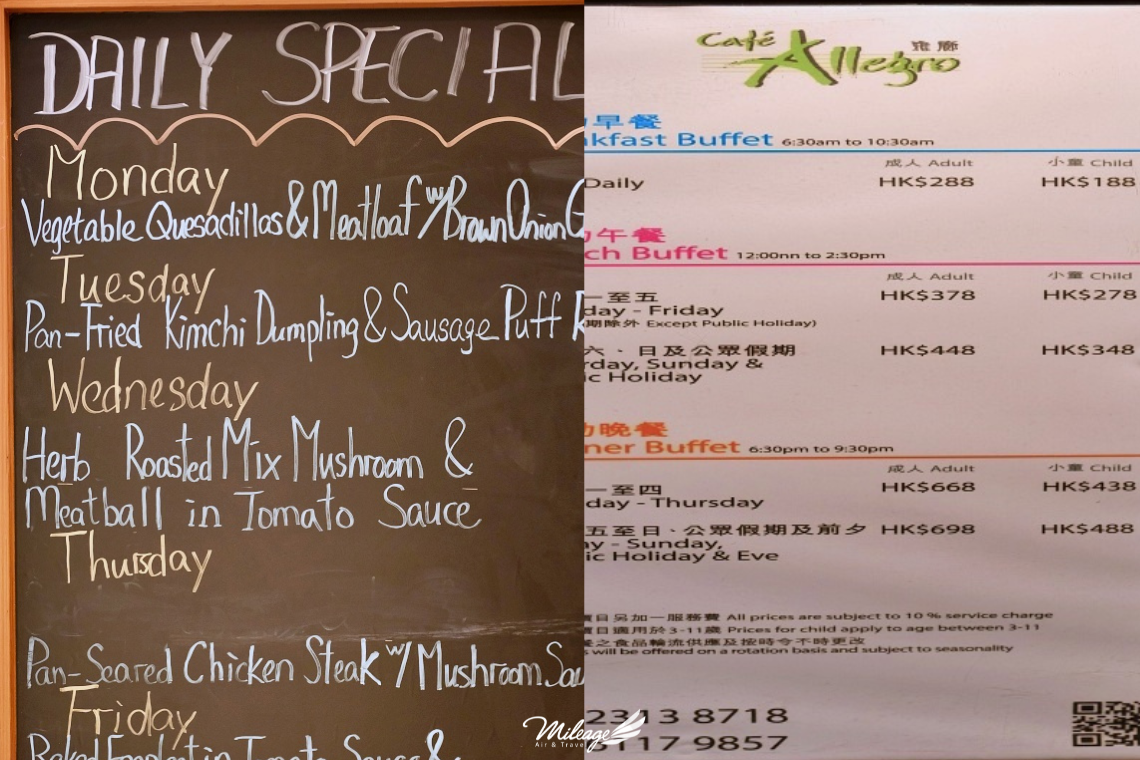 DAILY SPECIAL
Monday
Vegetable Quesadillas & Meatloaf w/ Brown Onion G
Tuesday
Pan-Fried Kimchi Dumpling & Sausage Puff
Wednesday
Herb Roasted Mix Mushroom &
Meatball in Tomato Sauce
Thursday
Pan-Seared Chicken Steak w/ Mushroom Sau
Friday
Baked Eggplant in Tomato Sauce &
Café Allegro
早餐
kfast Buffet 6:30am to 10:30am
成人 Adult 小童 Child
Daily HK$288 HK$188
午餐
ch Buffet 12:00nn to 2:30pm
成人 Adult 小童 Child
一至五 HK$378 HK$278
day - Friday
期除外 Except Public Holiday)
六、日及公眾假期 HK$448 HK$348
rday, Sunday &
ic Holiday
晚餐
ner Buffet 6:30pm to 9:30pm
成人 Adult 小童 Child
一至四 HK$668 HK$438
day - Thursday
五至日、公眾假期及前夕 HK$698 HK$488
ay - Sunday,
ic Holiday & Eve
目另加一服務費 All prices are subject to 10 % service charge
目適用於3-11歲 Prices for child apply to age between 3-11
之食品輪流供應及按時令不時更改
s will be offered on a rotation basis and subject to seasonality
2313 8718
6117 9857
Mileage
Air & Travel